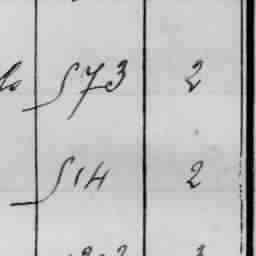 573 2
514 2